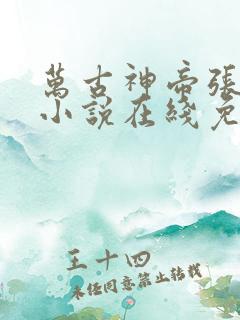 萬古神帝張
小說在綫免
王十四
未任同意禁止转载